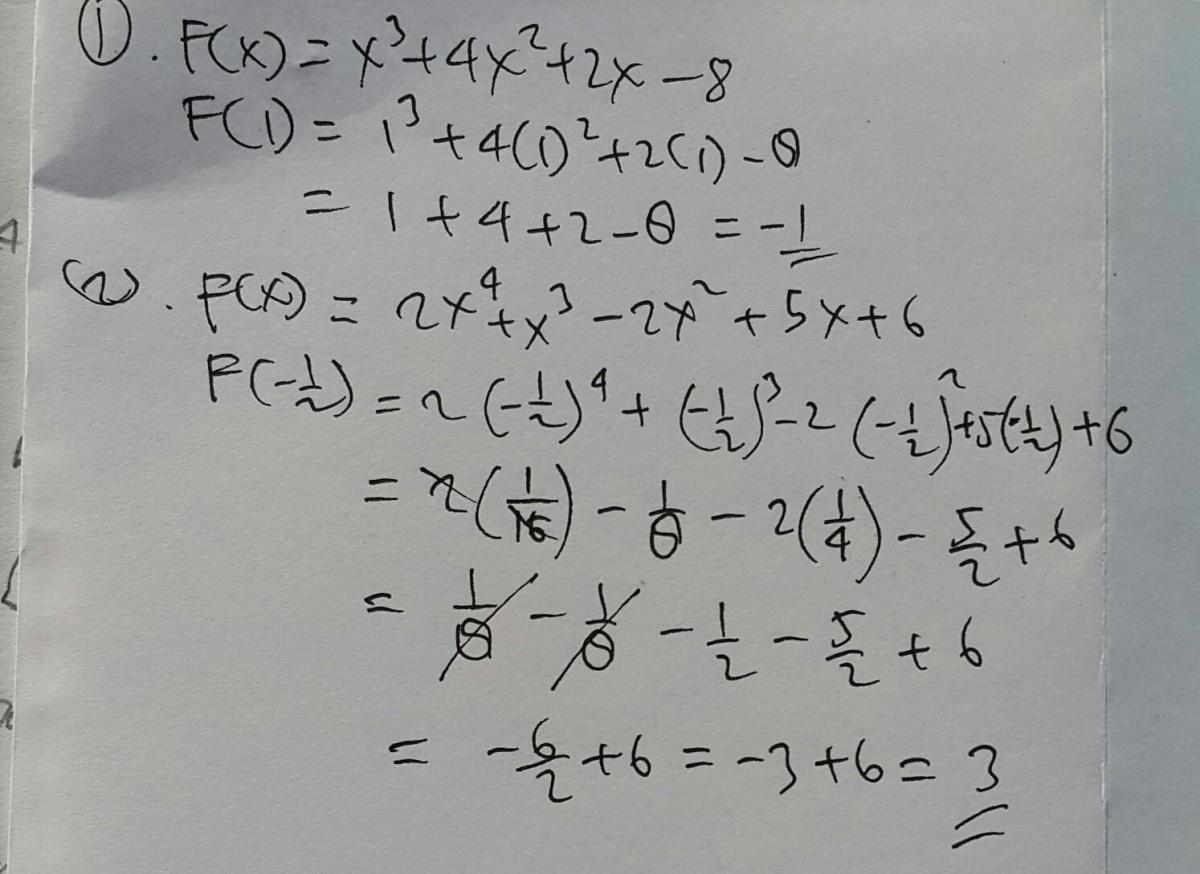 ①. F(x) = x³+4x²+2x-8
F(1) = 1³+4(1)²+2(1)-8
= 1+4+2-8 = -1
(2). F(x) = 2x⁴+x³-2x²+5x+6
F(-1/2) = 2(-1/2)⁴+(-1/2)³-2(-1/2)²+5(-1/2)+6
= 2(1/16)-1/8-2(1/4)-5/2+6
= 1/8-1/8-1/2-5/2+6
= -6/2+6 = -3+6 = 3